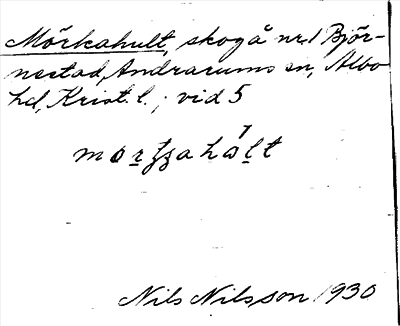 Mörkahult, skog å nr 1 Björ-
nestad, Andrarums sn, Albo
hd, Krist. l.; vid 5
Nils Nilsson 1930